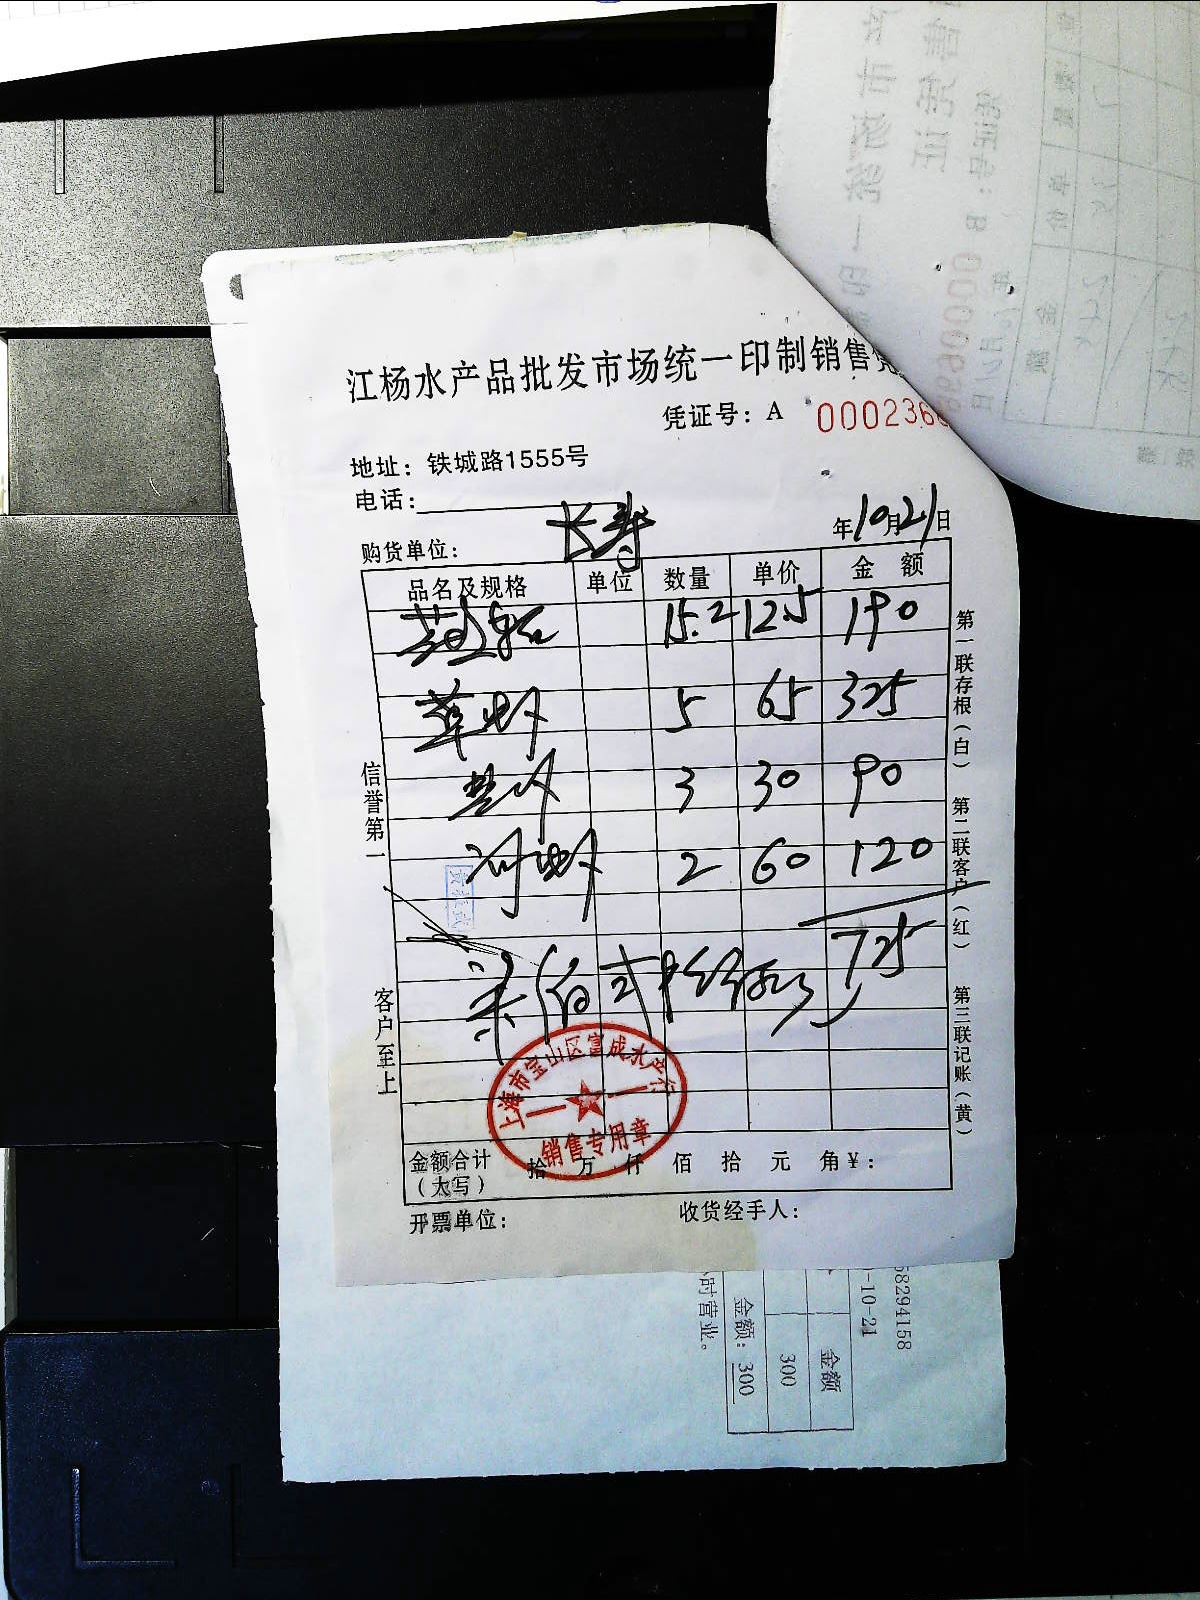 江杨水产品批发市场统一印制销售凭
凭证号：A 000236
地址：铁城路1555号
电话：
长寿
购货单位：
年10月21日
品名及规格 单位 数量 单价 金额
15.2 12.5 190
草虾 5 65 325
3 30 90
河虾 2 60 120
725
柒佰贰拾伍元
信誉第一
客户至上
第一联存根（白） 第二联客户（红） 第三联记账（黄）
上海市宝山区富成水产行
销售专用章
金额合计（大写） 拾 万 仟 佰 拾 元 角¥：
开票单位： 收货经手人：
68294158
-10-21
金额
300
金额：300
小时营业。